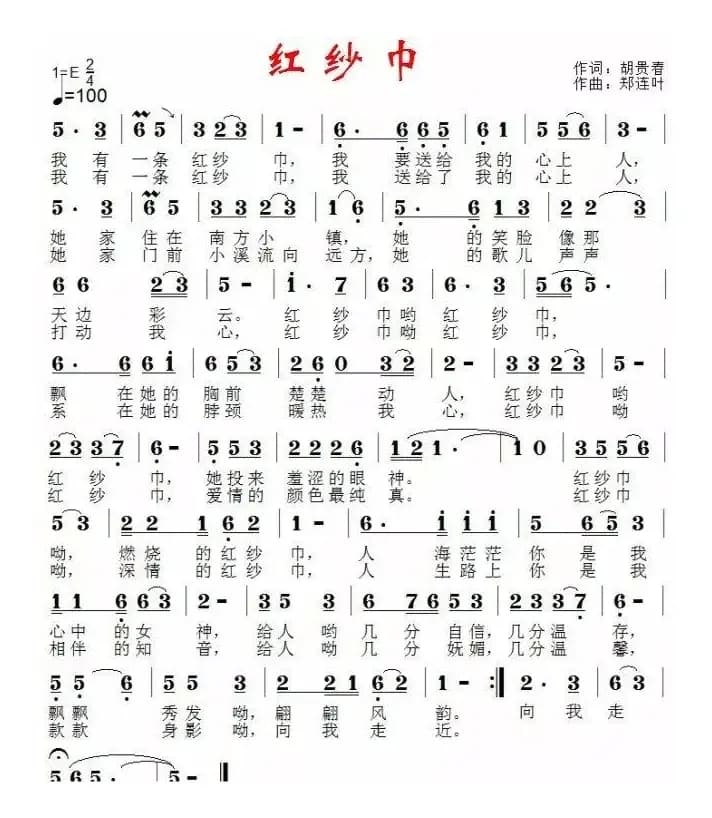 红纱巾
1=E 2/4
♩=100
作词：胡贵春
作曲：郑连叶
5· 3 | 6 5 | 3 2 3 | 1 - | 6· 6 6 5 | 6 1 | 5 5 6 | 3 - |
我有一条红纱巾，我要送给我的心上人，
我有一条红纱巾，我送给了我的心上人，
5· 3 | 6 5 | 3 3 2 3 | 1 6 | 5· 6 1 3 | 2 2 3 |
她家住在南方小镇，她的笑脸像那
她家门前小溪流向远方，她的歌儿声声
6 6 2 3 | 5 - | i· 7 | 6 3 | 6· 3 | 5 6 5· |
天边彩云。红纱巾哟红纱巾，
打动我心，红纱巾呦红纱巾，
6· 6 6 i | 6 5 3 | 2 6 0 3 2 | 2 - | 3 3 2 3 | 5 - |
飘在她的胸前楚楚动人，红纱巾哟
系在她的脖颈暖热我心，红纱巾呦
2 3 3 7 | 6 - | 5 5 3 5 | 2 2 2 6 | 1 2 1· | 1 0 | 3 5 5 6 |
红纱巾，她投来羞涩的眼神。红纱巾
红纱巾，爱情的颜色最纯真。红纱巾
5 3 | 2 2 1 6 2 | 1 - | 6· i | i i i | 5 6 5 3 |
呦，燃烧的红纱巾，人海茫茫你是我
呦，深情的红纱巾，人生路上你是我
1 1 6 6 3 | 2 - | 3 5 3 | 6 7 6 5 | 2 3 3 7 | 6 - |
心中的女神，给人哟几分自信，几分温存，
相伴的知音，给人呦几分妩媚，几分温馨，
5 5 6 | 5 5 3 | 2 2 1 6 2 | 1 - :| 2 3 | 6 |
飘飘秀发呦，翩翩风韵。向我走
款款身影呦，向我走近。
5 6 5· | 5 - ‖